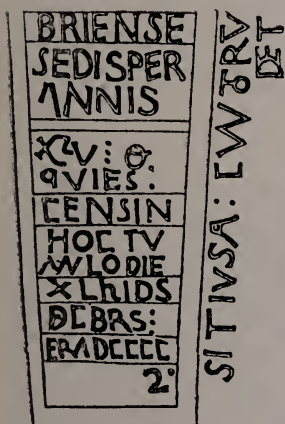 BRIENSE
SEDISPER
ANNIS
XV:
QVIES:
CENSIN
HOC TV
MVLODIE
X LhIDS
DCBRS:
ERADCCCC
2·
SITIVSA:
DET